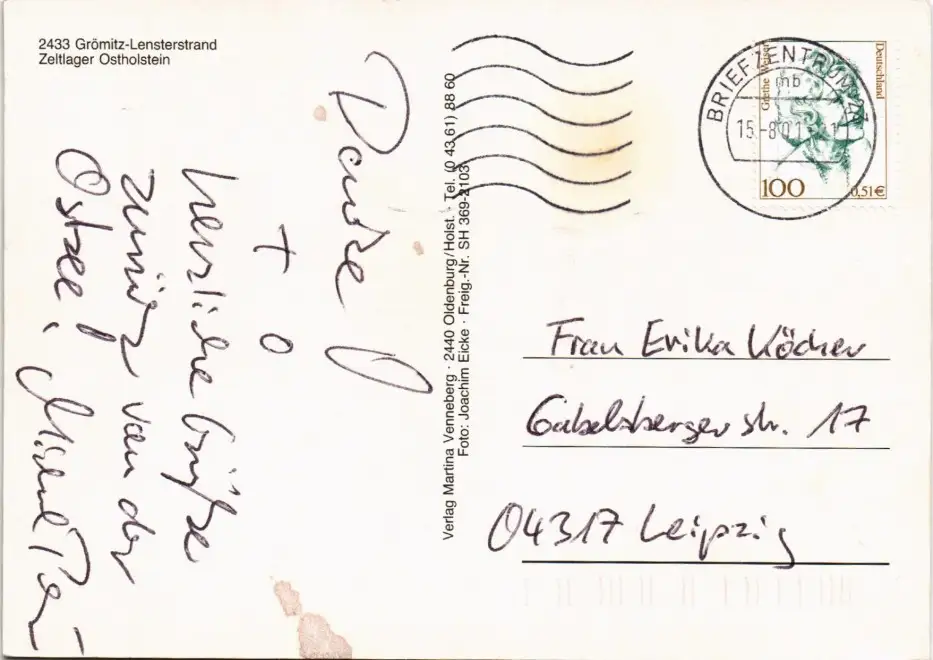 2433 Grömitz-Lensterstrand
Zeltlager Ostholstein
Danke
+
herzliche Grüße
zurück von der
Ostsee!
Verlag Martina Venneberg · 2440 Oldenburg/Holst. · Tel. (0 43 61) 88 60
Foto: Joachim Eicke · Freig.-Nr. SH 369-2103
BRIEFZENTRUM 23
mb
15.-8.01
Deutschland
100
0,51€
Frau Erika Köcher
Gabelsbergerstr. 17
04317 Leipzig